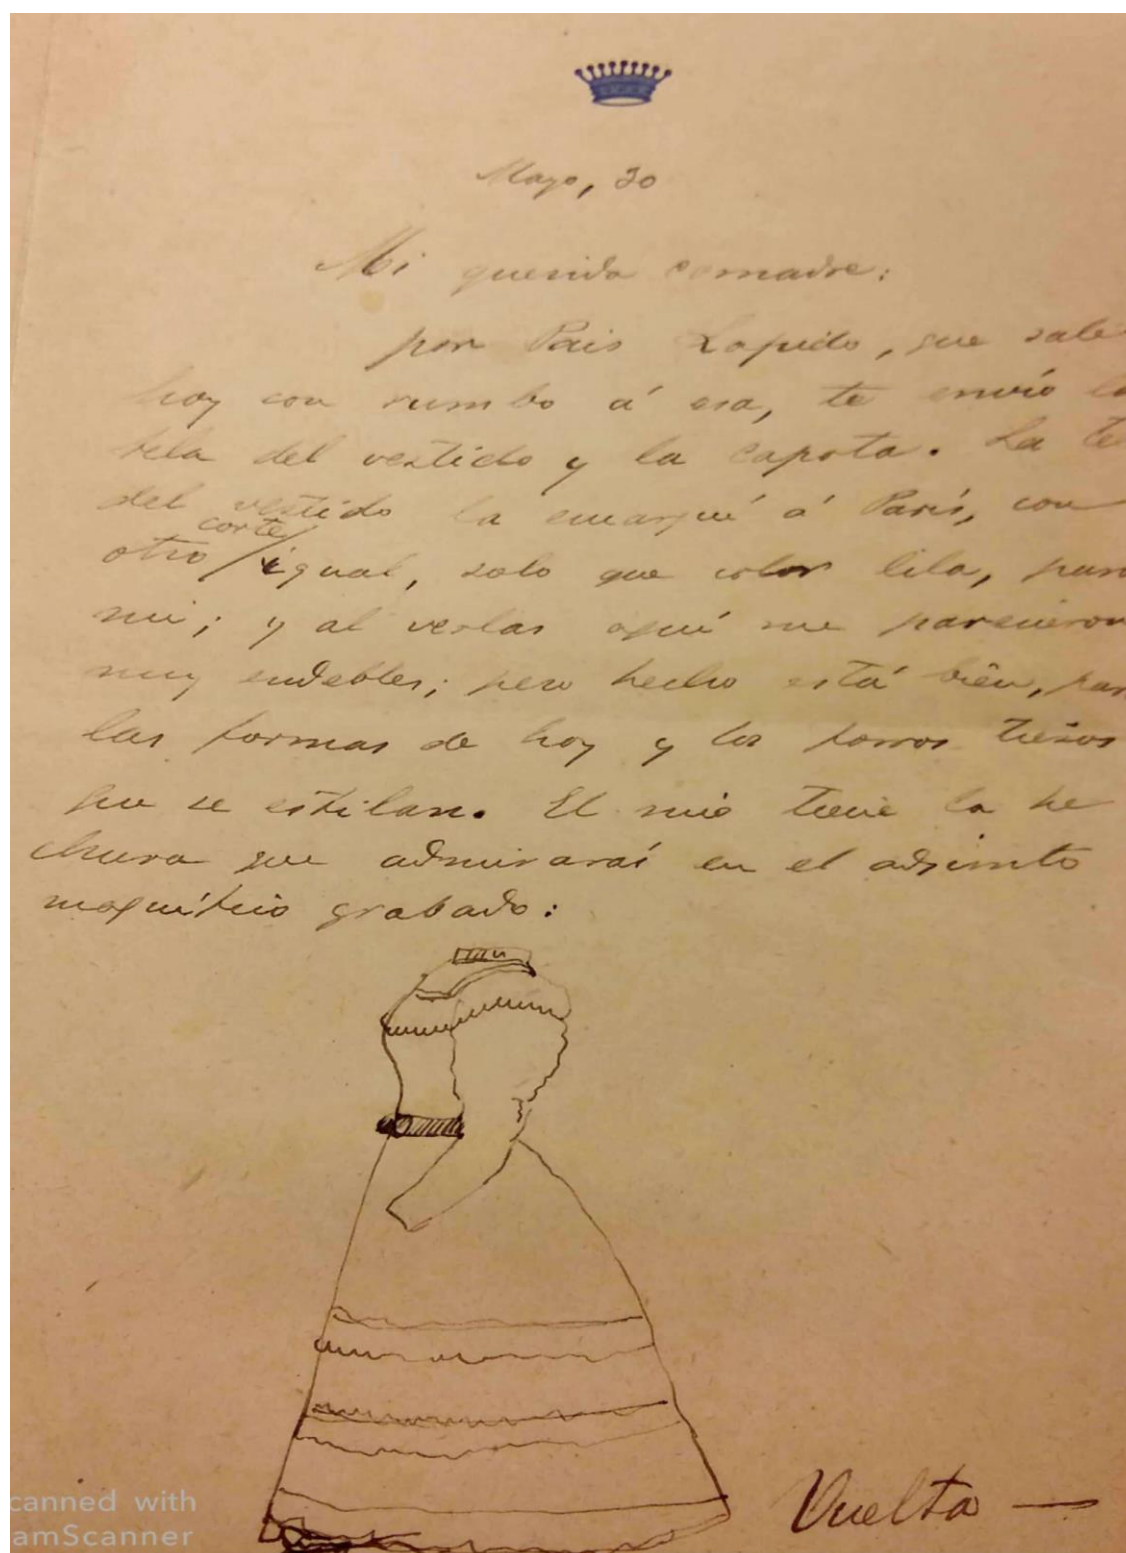 Mayo, 30
Mi querida comadre:
por Pais Lapido, que sale
hoy con rumbo á esa, te envío la
tela del vestido y la capota. La te
del vestido la encargué á París, con
otro corte igual, solo que color lila, para
mi; y al verlas aquí me parecieron
muy endebles; pero hecho está bien, par
las formas de hoy y los forros tiesos
que se estilan. El mio tiene la he
chura que admirarás en el adjunto
magnífico grabado:
Vuelta —
canned with
amScanner